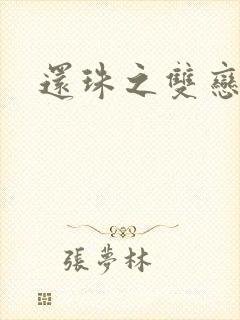 還珠之雙戀
張夢林